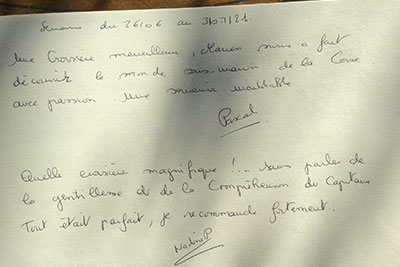 Semaine du 26/06 au 3/07/21.
Une Croisière merveilleuse, nous a fait
découvrir le monde sous-marin de la Corse
avec passion Une souvenir inoubliable
Pascal
Quelle croisière magnifique !... sans parler de
la gentillesse et de la Compréhension du Capitaine
Tout était parfait, je recommande fortement.
Nadine P